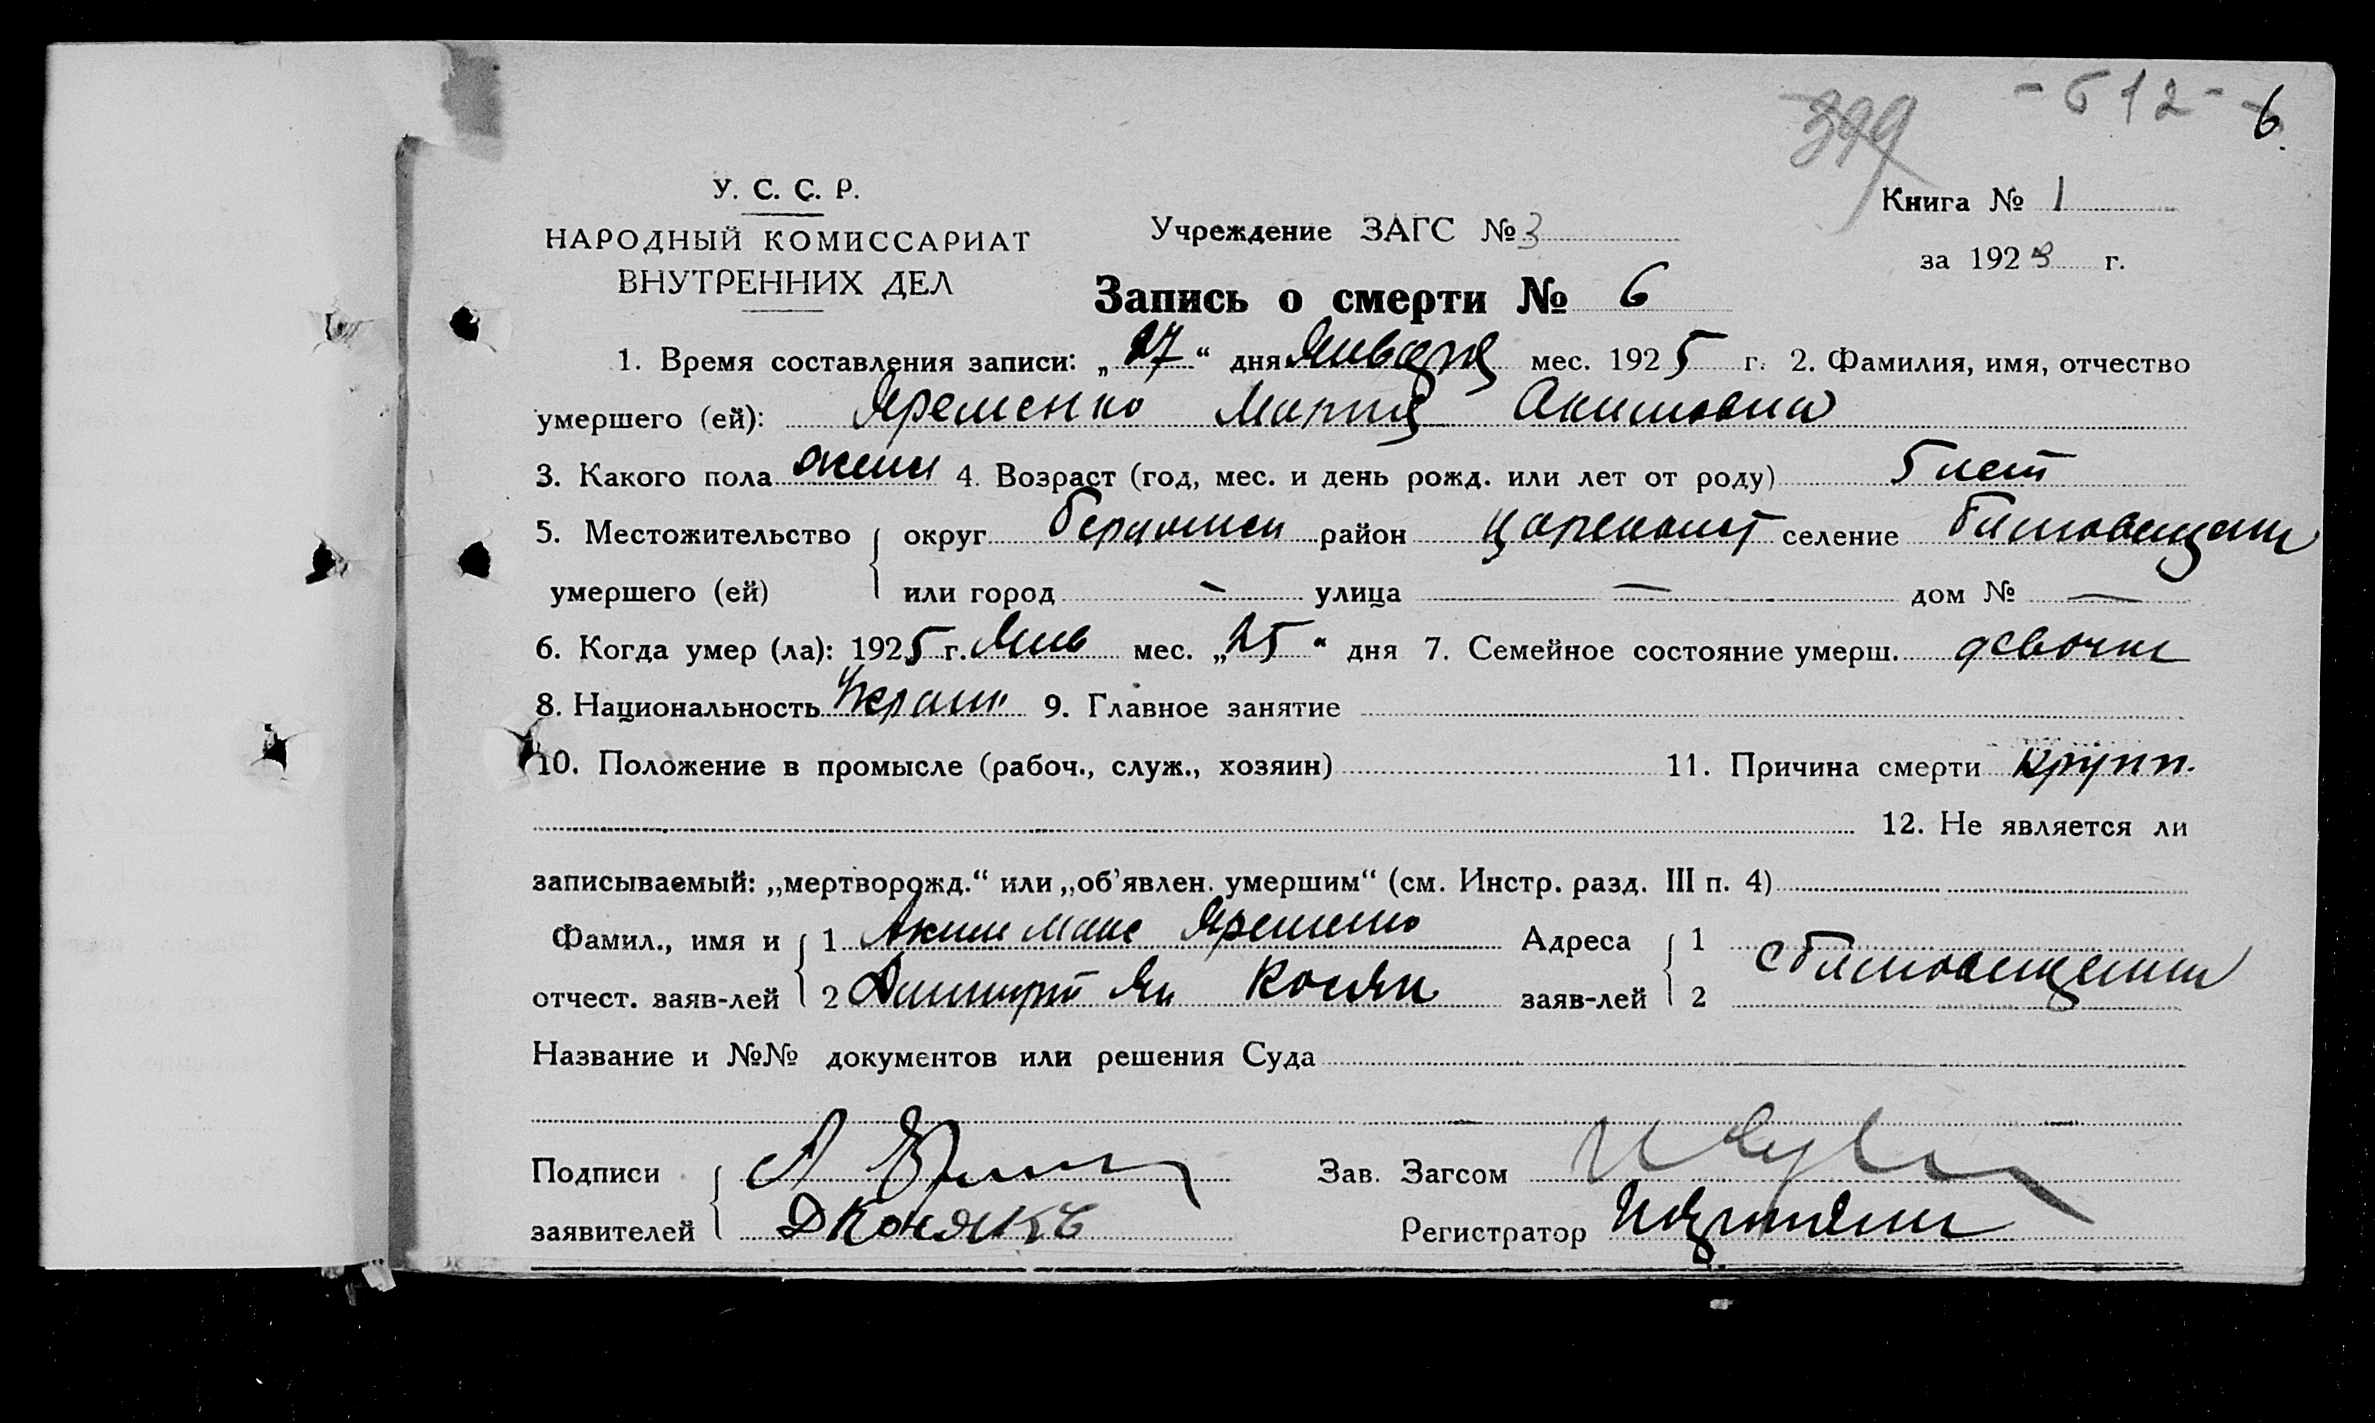 - 612 - 6
399
У. С. С. Р.
НАРОДНЫЙ КОМИССАРИАТ
ВНУТРЕННИХ ДЕЛ
Учреждение ЗАГС № 3
Книга № 1
за 192 г.
Запись о смерти № 6
1. Время составления записи: „27“ дня Января мес. 1925 г. 2. Фамилия, имя, отчество
умершего (ей): Яременко Мария Акимовна
3. Какого пола женск 4. Возраст (год, мес. и день рожд. или лет от роду) 5 лет
5. Местожительство округ район селение
умершего (ей) или город — улица — дом № —
6. Когда умер (ла): 1925 г. Янв мес. „25“ дня 7. Семейное состояние умерш. девочка
8. Национальность Украин 9. Главное занятие
10. Положение в промысле (рабоч., служ., хозяин) 11. Причина смерти Крупп.
12. Не является ли
записываемый: „мертворожд.“ или „об’явлен. умершим“ (см. Инстр. разд. III п. 4)
Фамил., имя и 1 Аким Яременко Адреса 1
отчест. заяв-лей 2 Дмитрий заяв-лей 2
Название и №№ документов или решения Суда
Подписи Зав. Загсом
заявителей ДКонякъ Регистратор